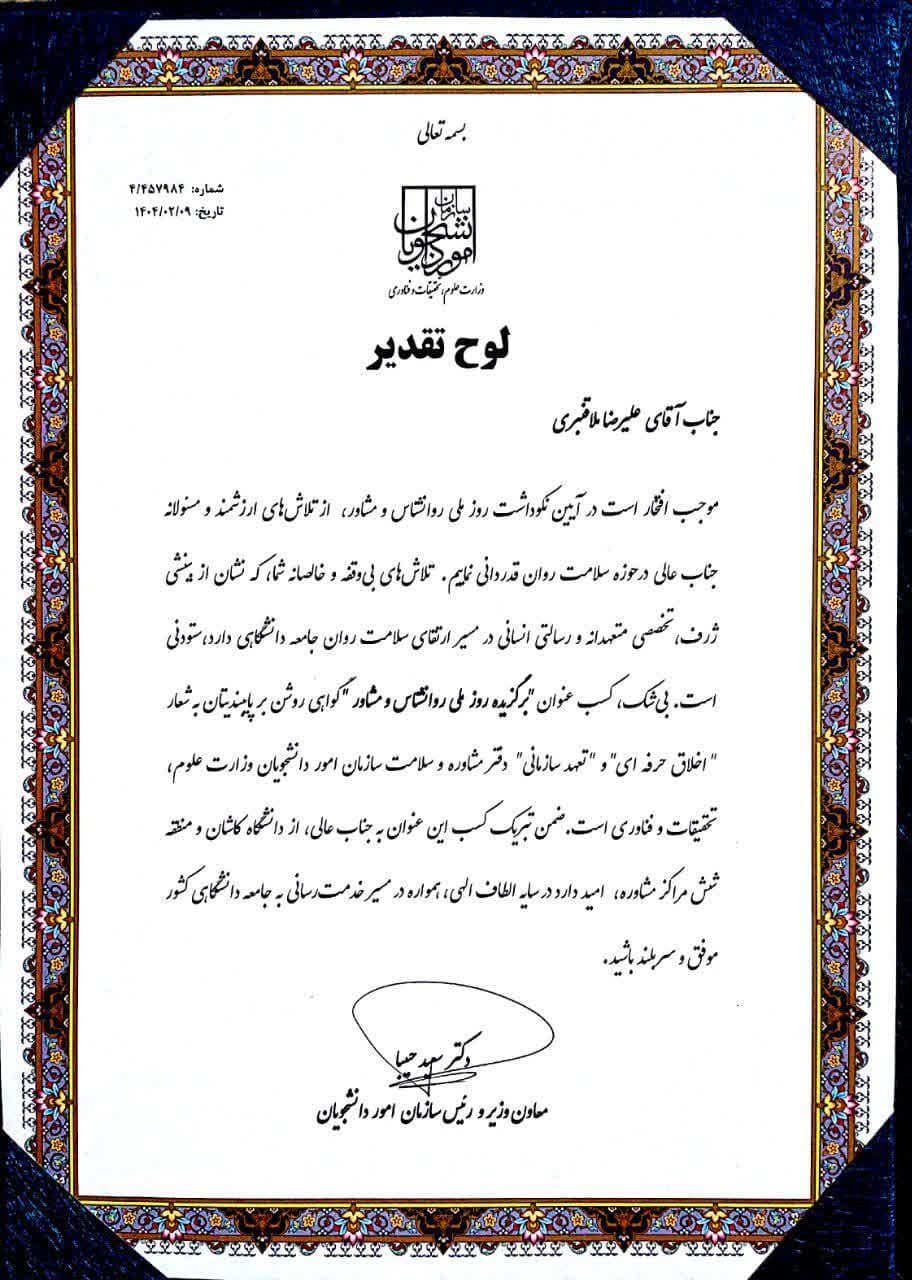 بسمه تعالی
شماره: ۴/۴۵۷۹۸۴
تاریخ: ۱۴۰۴/۰۲/۰۹
سازمان امور دانشجویان
وزارت علوم، تحقیقات و فناوری
لوح تقدیر
جناب آقای علیرضا ملاقنبری
موجب افتخار است در آیین نکوداشت روز ملی روانشناس و مشاور، از تلاش‌های ارزشمند و مسئولانه
جناب عالی درحوزه سلامت روان قدردانی نماییم. تلاش‌های بی‌وقفه و خالصانه شما، که نشان از بینشی
ژرف، تخصصی متعهدانه و رسالتی انسانی در مسیر ارتقای سلامت روان جامعه دانشگاهی دارد، ستودنی
است. بی‌شک، کسب عنوان "برگزیده روز ملی روانشناس و مشاور" گواهی روشن بر پایبندیتان به شعار
"اخلاق حرفه ای" و "تعهد سازمانی" دفتر مشاوره و سلامت سازمان امور دانشجویان وزارت علوم،
تحقیقات و فناوری است. ضمن تبریک کسب این عنوان به جناب عالی، از دانشگاه کاشان و منطقه
شش مراکز مشاوره، امید دارد در سایه الطاف الهی، همواره در مسیر خدمت‌رسانی به جامعه دانشگاهی کشور
موفق و سربلند باشید.
دکتر سعید حبیبا
معاون وزیر و رئیس سازمان امور دانشجویان